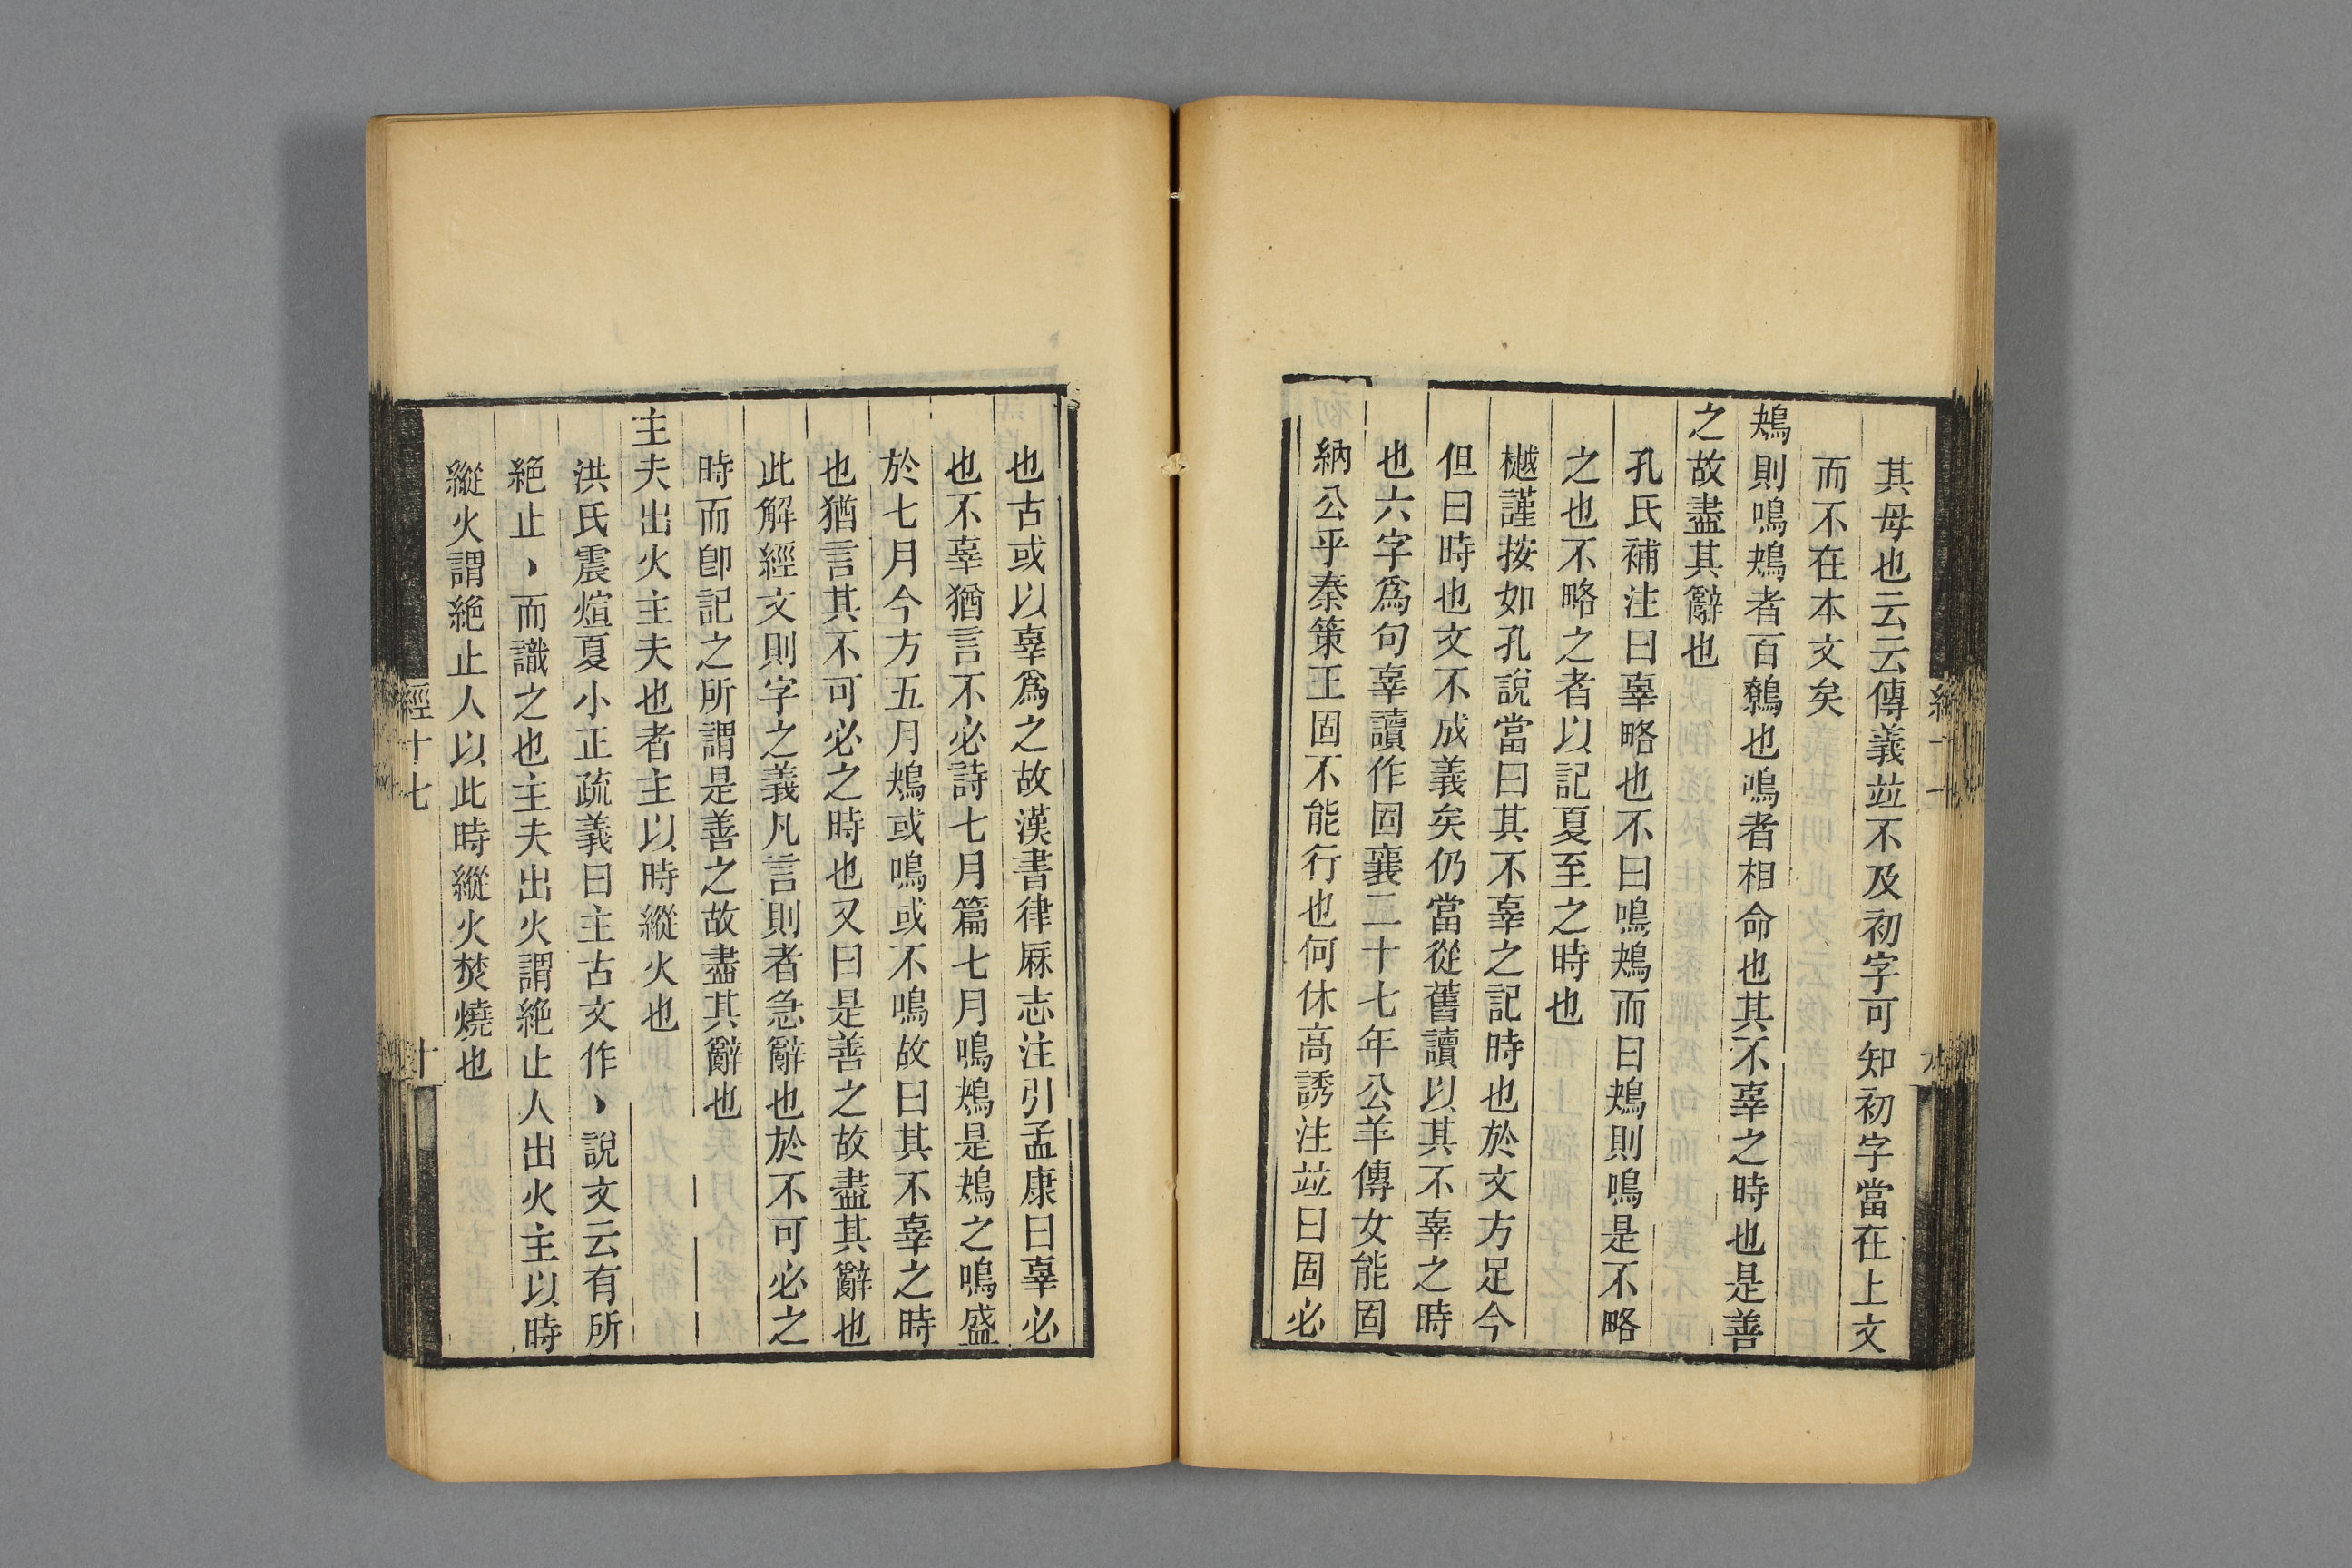 其母也云云傳義竝不及初字可知初字當在上文
而不在本文矣
鴂則鳴鴂者百鷯也鳴者相命也其不辜之時也是善
之故盡其辭也
孔氏補注曰辜略也不曰鳴鴂而曰鴂則鳴是不略
之也不略之者以記夏至之時也
樾謹按如孔說當曰其不辜之記時也於文方足今
但曰時也文不成義矣仍當從舊讀以其不辜之時
也六字爲句辜讀作固襄二十七年公羊傳女能固
納公乎秦策王固不能行也何休高誘注竝曰固必
也古或以辜爲之故漢書律厤志注引孟康曰辜必
也不辜猶言不必詩七月篇七月鳴鴂是鴂之鳴盛
於七月今方五月鴂或鳴或不鳴故曰其不辜之時
也猶言其不可必之時也又曰是善之故盡其辭也
此解經文則字之義凡言則者急辭也於不可必之
時而卽記之所謂是善之故盡其辭也
主夫出火主夫也者主以時縱火也
洪氏震煊夏小正疏義曰主古文作丶說文云有所
絕止丶而識之也主夫出火謂絕止人出火主以時
縱火謂絕止人以此時縱火焚燒也
經十七
十